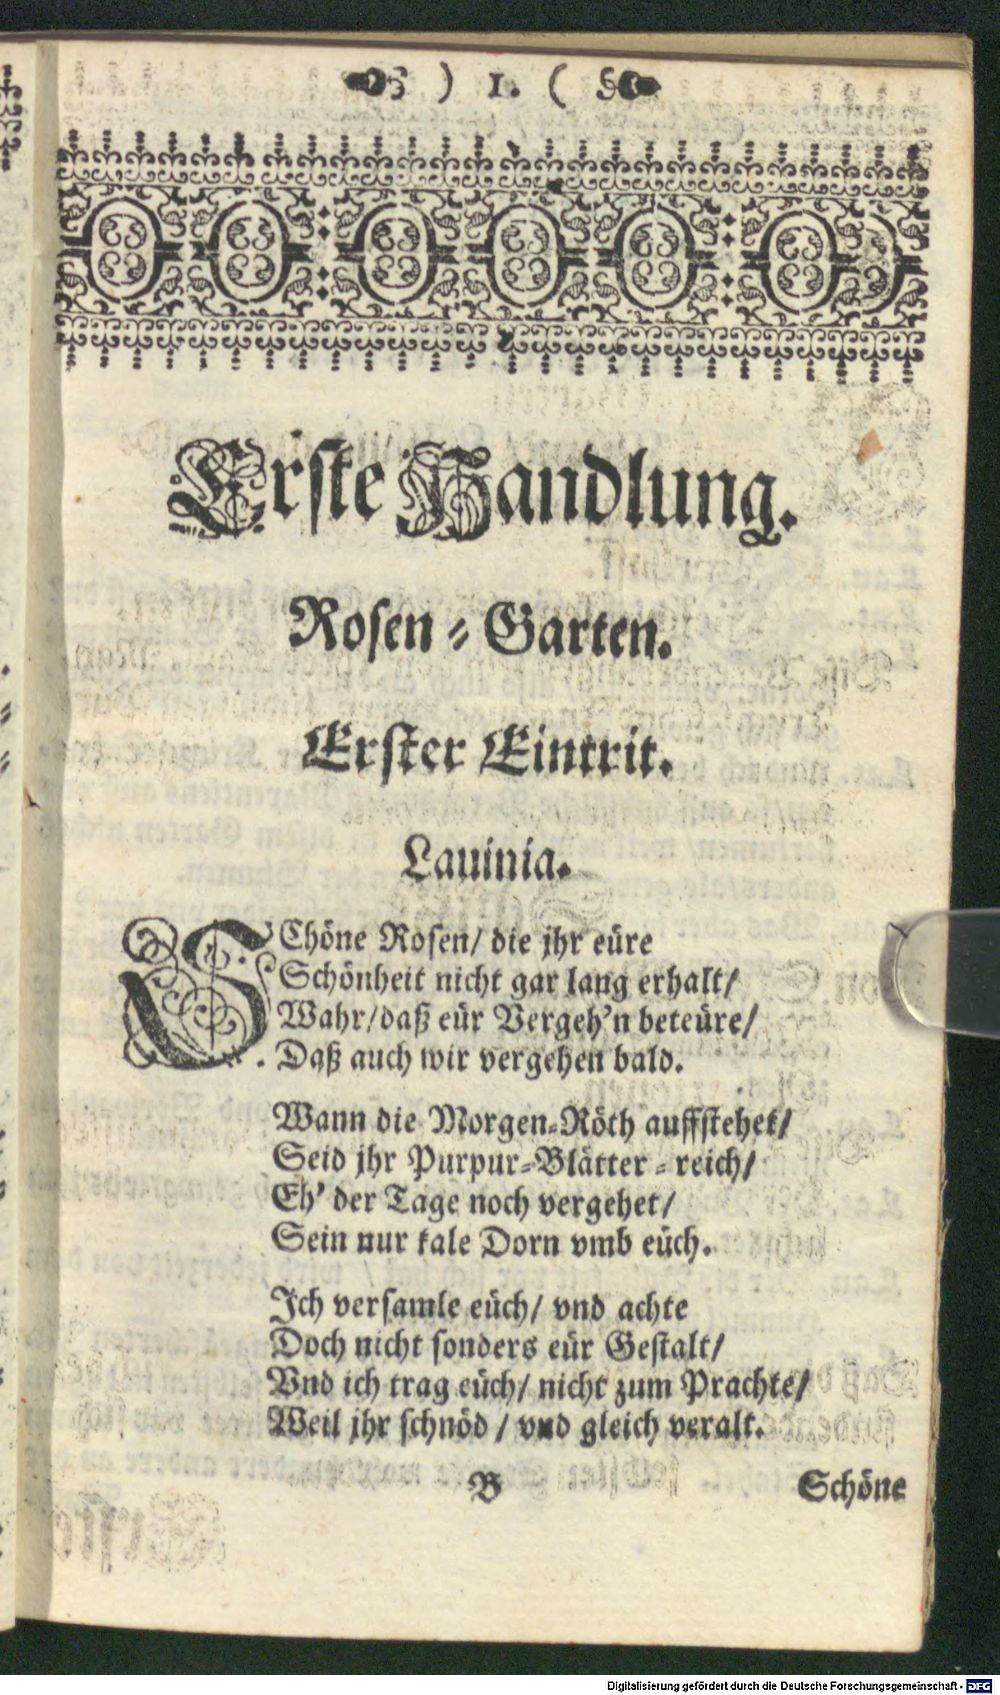 ) 1. (
Erste Handlung.
Rosen-Garten.
Erster Eintrit.
Lauinia.
SChöne Rosen/ die jhr eüre
Schönheit nicht gar lang erhalt/
Wahr/daß eür Vergeh'n beteüre/
Daß auch wir vergehen bald.
Wann die Morgen-Röth auffstehet/
Seid jhr Purpur-Blätter-reich/
Eh' der Tage noch vergehet/
Sein nur kale Dorn vmb eüch.
Ich versamle eüch/ vnd achte
Doch nicht sonders eür Gestalt/
Vnd ich trag eüch/ nicht zum Prachte/
Weil jhr schnöd/ vnd gleich veralt.
B Schöne
Digitalisierung gefördert durch die Deutsche Forschungsgemeinschaft - DFG